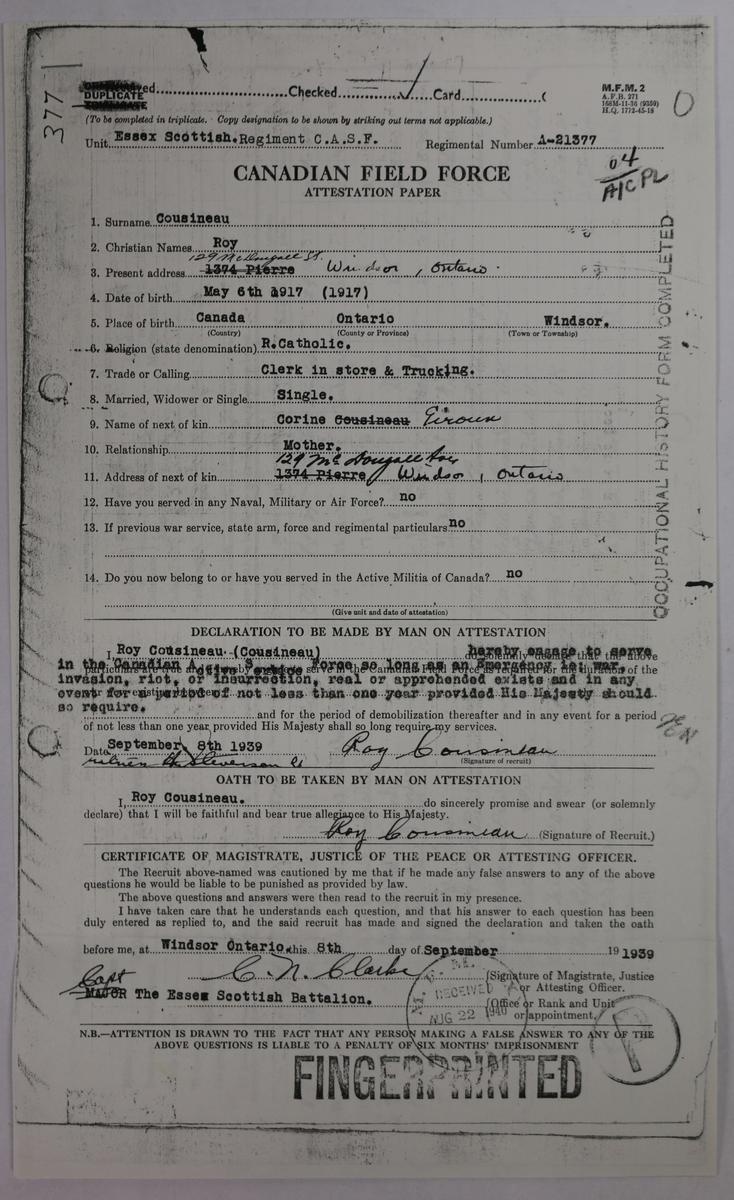 377
DUPLICATE
Checked
Card
M.F.M. 2
A.F.B. 271
H.Q. 1772-45-18
(To be completed in triplicate. Copy designation to be shown by striking out terms not applicable.)
Unit Essex Scottish. Regiment C.A.S.F. Regimental Number A-21377
CANADIAN FIELD FORCE
04
A/CPL
ATTESTATION PAPER
1. Surname Cousineau
2. Christian Names Roy
129 McDougall St.
3. Present address 1374 Pierre Windsor, Ontario.
4. Date of birth May 6th 1917 (1917)
5. Place of birth Canada Ontario Windsor.
(Country) (County or Province) (Town or Township)
6. Religion (state denomination) R.Catholic.
7. Trade or Calling Clerk in store & Trucking.
8. Married, Widower or Single Single.
9. Name of next of kin Corine Cousineau Giroux
10. Relationship Mother.
129 McDougall Ave
11. Address of next of kin 1374 Pierre Windsor, Ontario
12. Have you served in any Naval, Military or Air Force? no
13. If previous war service, state arm, force and regimental particulars no
14. Do you now belong to or have you served in the Active Militia of Canada? no
(Give unit and date of attestation)
OCCUPATIONAL HISTORY FORM COMPLETED
DECLARATION TO BE MADE BY MAN ON ATTESTATION
I Roy Cousineau (Cousineau) hereby engage to serve
in the Canadian Active Service Force so long as an Emergency, i.e. war,
invasion, riot, or insurrection, real or apprehended exists and in any
event for a period of not less than one year provided His Majesty should
so require.
and for the period of demobilization thereafter and in any event for a period
of not less than one year provided His Majesty shall so long require my services.
Date September, 8th 1939 Roy Cousineau
(Signature of recruit)
OATH TO BE TAKEN BY MAN ON ATTESTATION
I, Roy Cousineau. do sincerely promise and swear (or solemnly
declare) that I will be faithful and bear true allegiance to His Majesty.
Roy Cousineau (Signature of Recruit.)
CERTIFICATE OF MAGISTRATE, JUSTICE OF THE PEACE OR ATTESTING OFFICER.
The Recruit above-named was cautioned by me that if he made any false answers to any of the above
questions he would be liable to be punished as provided by law.
The above questions and answers were then read to the recruit in my presence.
I have taken care that he understands each question, and that his answer to each question has been
duly entered as replied to, and the said recruit has made and signed the declaration and taken the oath
before me, at Windsor Ontario. this 8th day of September 19 1939
C. N. Clarke (Signature of Magistrate, Justice
or Attesting Officer.
Capt
MAJOR The Essex Scottish Battalion. (Office or Rank and Unit
or appointment.
RECEIVED
AUG 22 1940
N.B.—ATTENTION IS DRAWN TO THE FACT THAT ANY PERSON MAKING A FALSE ANSWER TO ANY OF THE
ABOVE QUESTIONS IS LIABLE TO A PENALTY OF SIX MONTHS' IMPRISONMENT
FINGERPRINTED